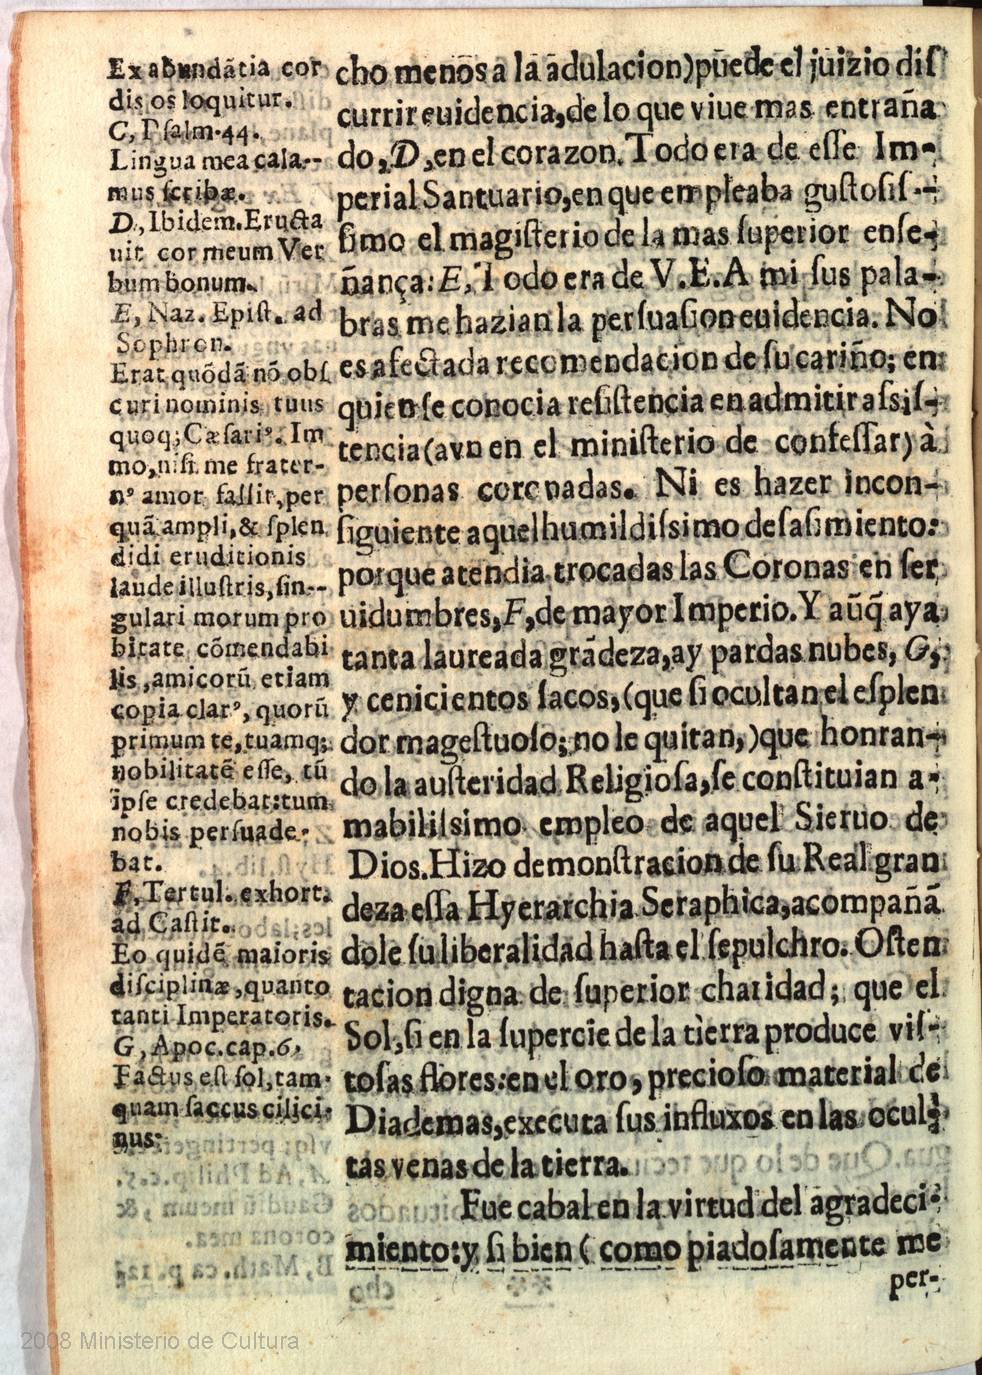 Ex abundãtia cor
dis os loquitur.
C, Psalm.44.
Lingua mea cala--
mus scribæ.
D, Ibidem. Eructa
uit cor meum Ver
bum bonum.
E, Naz. Epist. ad
Sophron.
Erat quõdã nõ obs
curi nominis tuus
quoq; Cæsari⁹. Im
mo, nisi me frater-
n⁹ amor fallit, per
quã ampli, & splen
didi eruditionis
laude illustris, sin--
gulari morum pro
bitate cõmendabi
lis, amicorũ etiam
copia clar⁹, quorũ
primum te, tuamq;
nobilitatẽ esse, tũ
ipse credebat: tum
nobis persuade-
bat.
F, Tertul. exhort.
ad Castit.
Eo quidẽ maioris
disciplinæ, quanto
tanti Imperatoris.
G, Apoc. cap. 6.
Factus est sol, tam-
quam saccus cilici-
nus.
cho menos a la adulacion) puede el juizio dis
currir euidencia, de lo que viue mas entraña
do, D, en el corazon. Todo era de esse Im-
perial Santuario, en que empleaba gustosis-
simo el magisterio de la mas superior ense-
ñança: E, Todo era de V.E. A mi sus pala-
bras me hazian la persuasion euidencia. No
es afectada recomendacion de su cariño; en
quien se conocia resistencia en admitir assis-
tencia (avn en el ministerio de confessar) à
personas coronadas. Ni es hazer incon-
siguiente aquel humildissimo desasimiento:
porque atendia trocadas las Coronas en ser
uidumbres, F, de mayor Imperio. Y aũq̃ aya
tanta laureada grãdeza, ay pardas nubes, G,
y cenicientos sacos, (que si ocultan el esplen
dor magestuoso; no le quitan,) que honran-
do la austeridad Religiosa, se constituian a-
mabilissimo empleo de aquel Sieruo de
Dios. Hizo demonstracion de su Real gran
deza essa Hyerarchia Seraphica, acompañã
dole su liberalidad hasta el sepulchro. Osten
tacion digna de superior charidad; que el
Sol, si en la supercie de la tierra produce vis-
tosas flores: en el oro, precioso material de
Diademas, executa sus influxos en las ocul-
tas venas de la tierra.
Fue cabal en la virtud del agradeci-
miento: y si bien (como piadosamente me
per-
2008 Ministerio de Cultura